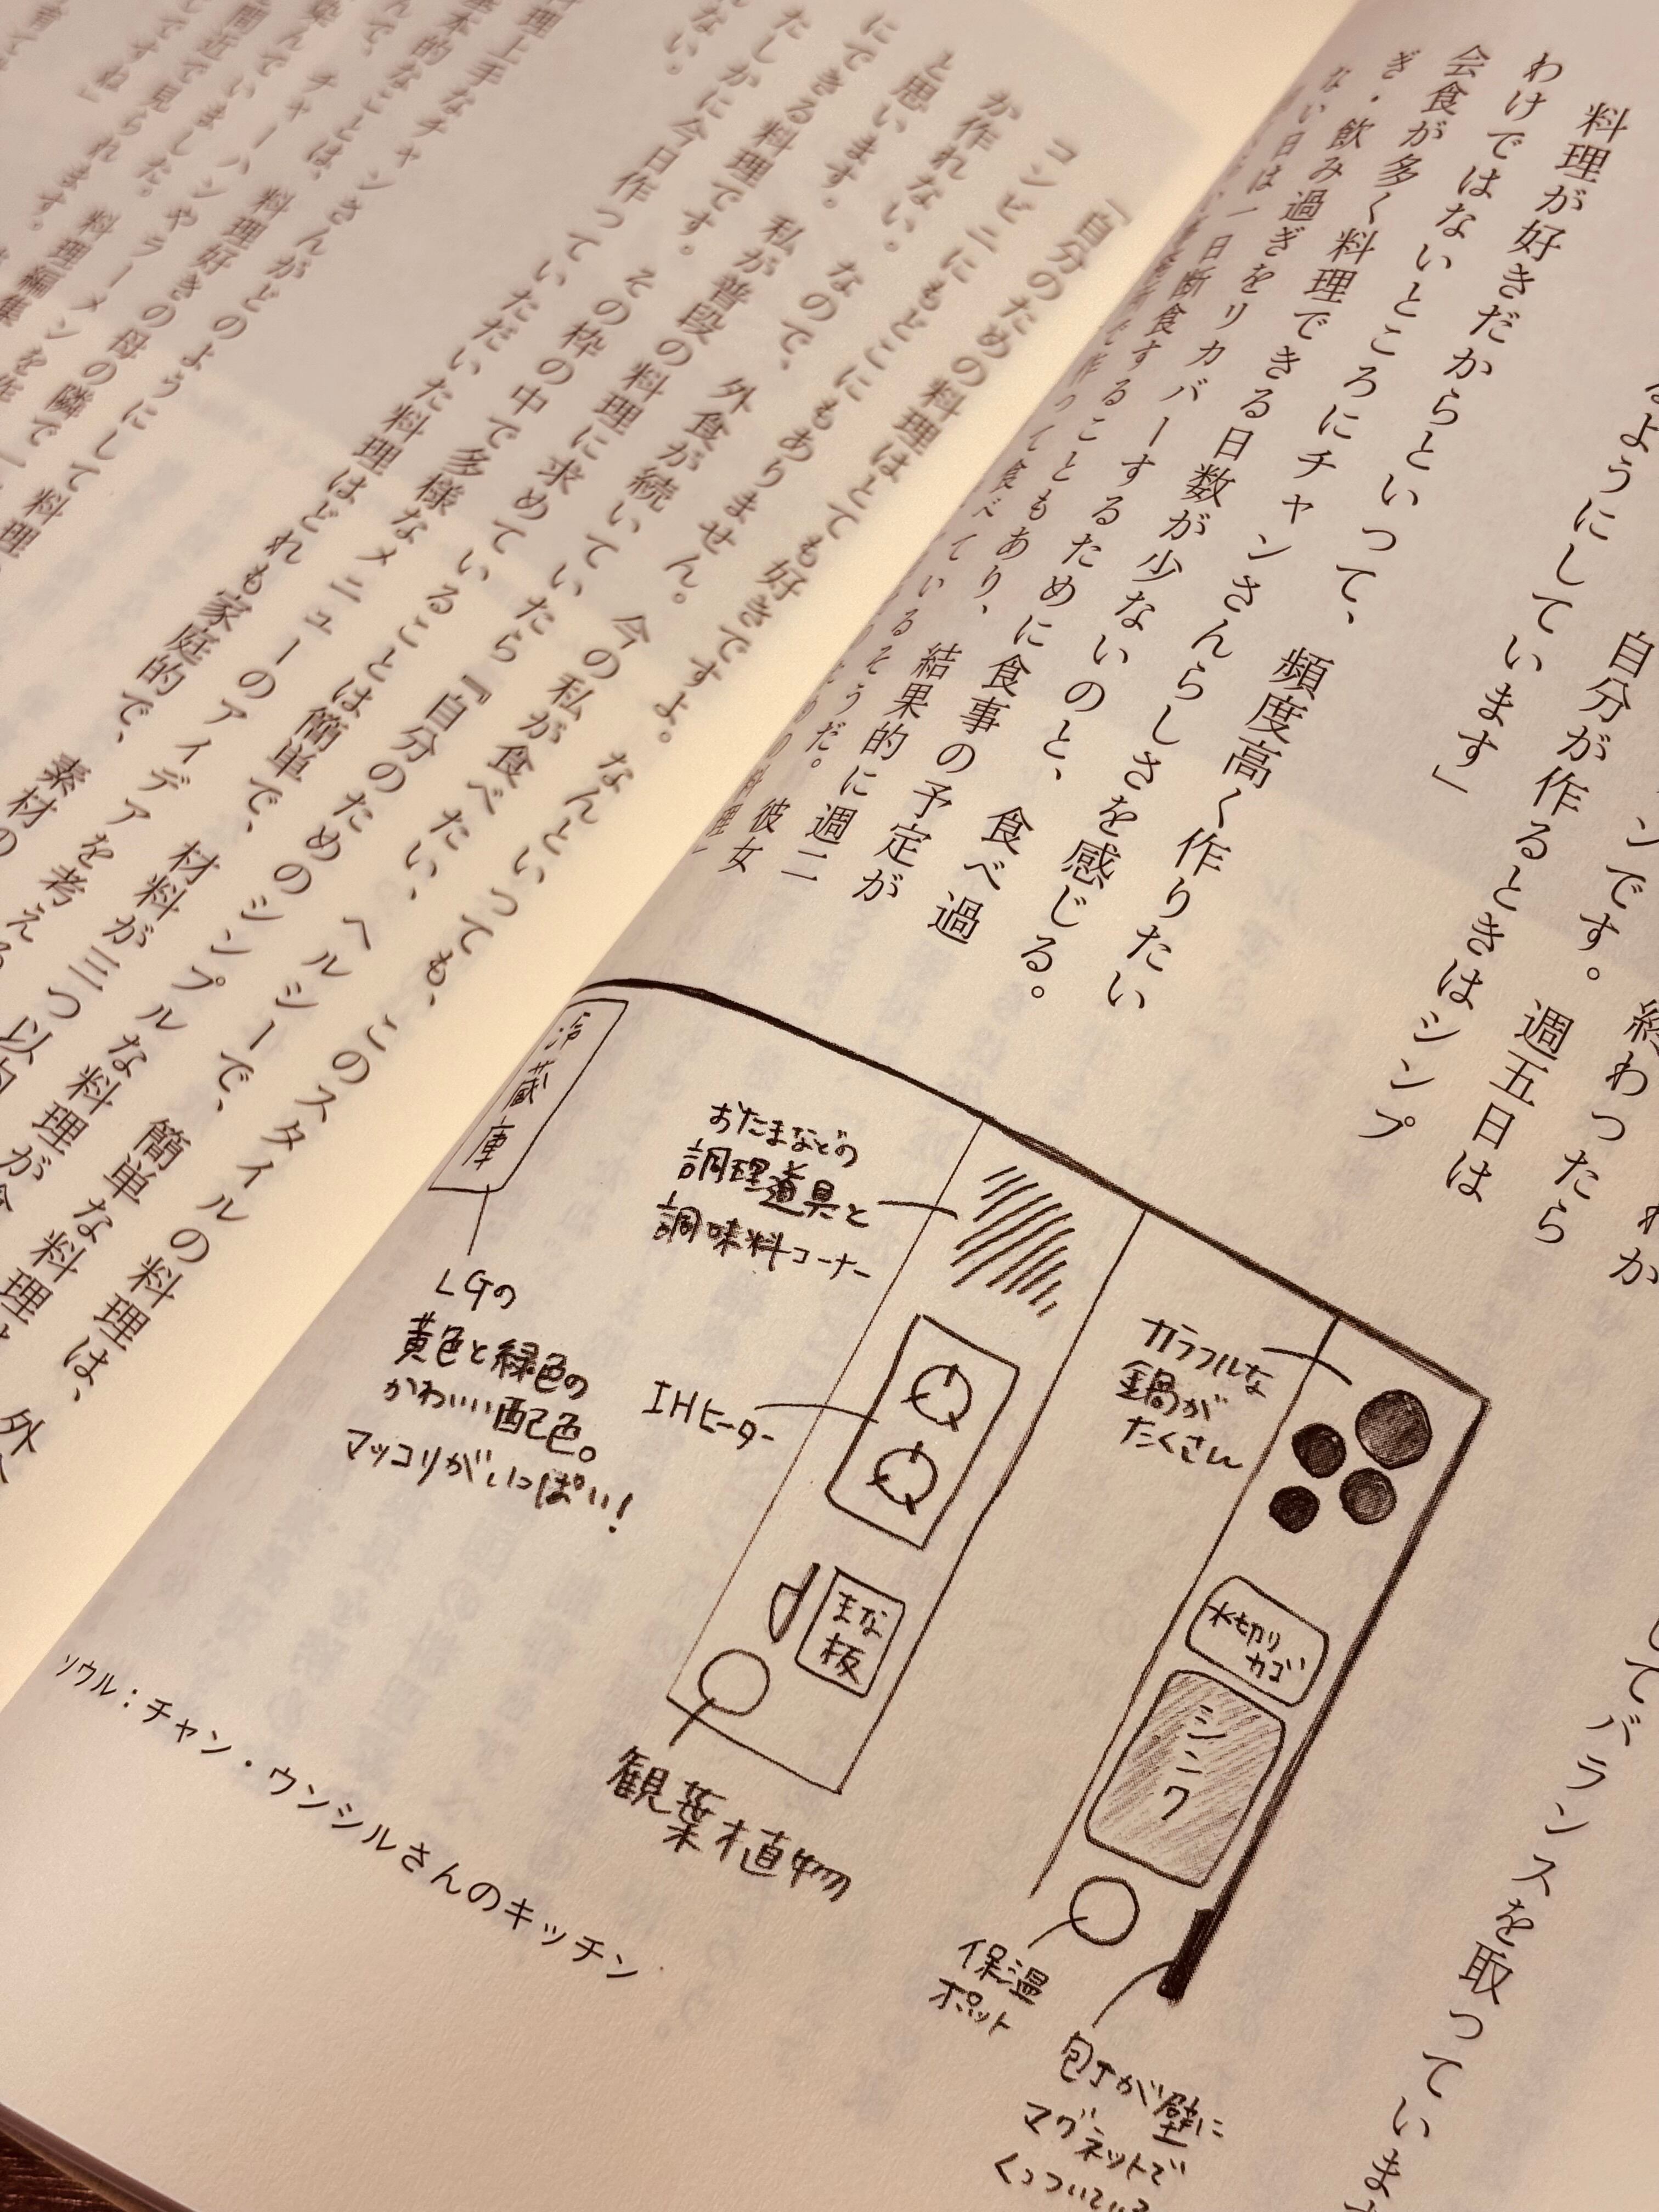 ンです。終わったら
自分が作るときはシンプ
るようにしています」
料理が好きだからといって、頻度高く作りたい
わけではないところにチャンさんらしさを感じる。
会食が多く料理できる日数が少ないのと、食べ過
ぎ・飲み過ぎをリカバーするために食事の予定が
ない日は一日断食することもあり、結果的に週二
そうだ。彼女
週五日は
してバランスを取っています
冷蔵庫
LGの
黄色と緑色の
かわいい配色。
マッコリがいっぱい!
おたまなどの
調理道具と
調味料コーナー
IHヒーター
まな
板
観葉植物
カラフルな
鍋が
たくさん
水切り
カゴ
シンク
保温
ポット
包丁が壁に
マグネットで
くっついている
ソウル:チャン・ウンシルさんのキッチン
「自分のための料理はとても好きですよ。なんといっても、このスタイルの料理は、外
コンビニにもどこにもありません。今の私が食べたい、ヘルシーで、簡単な料理は
か作れない。なので、外食が続いていたら『自分のためのシンプルな料理が
と思います。私が普段の料理に求めていることは簡単で、材料が三つ以内
にできる料理です。その枠の中で多様なメニューのアイデアを考える
たしかに今日作っていただいた料理はどれも家庭的で、素材の
ない。
料理上手なチャンさんがどのようにして料理
基本的なことは、料理好きの母の隣で
チャーハンやラーメンを作
染んでいました。料理編集
間近で見られます。
ですね」